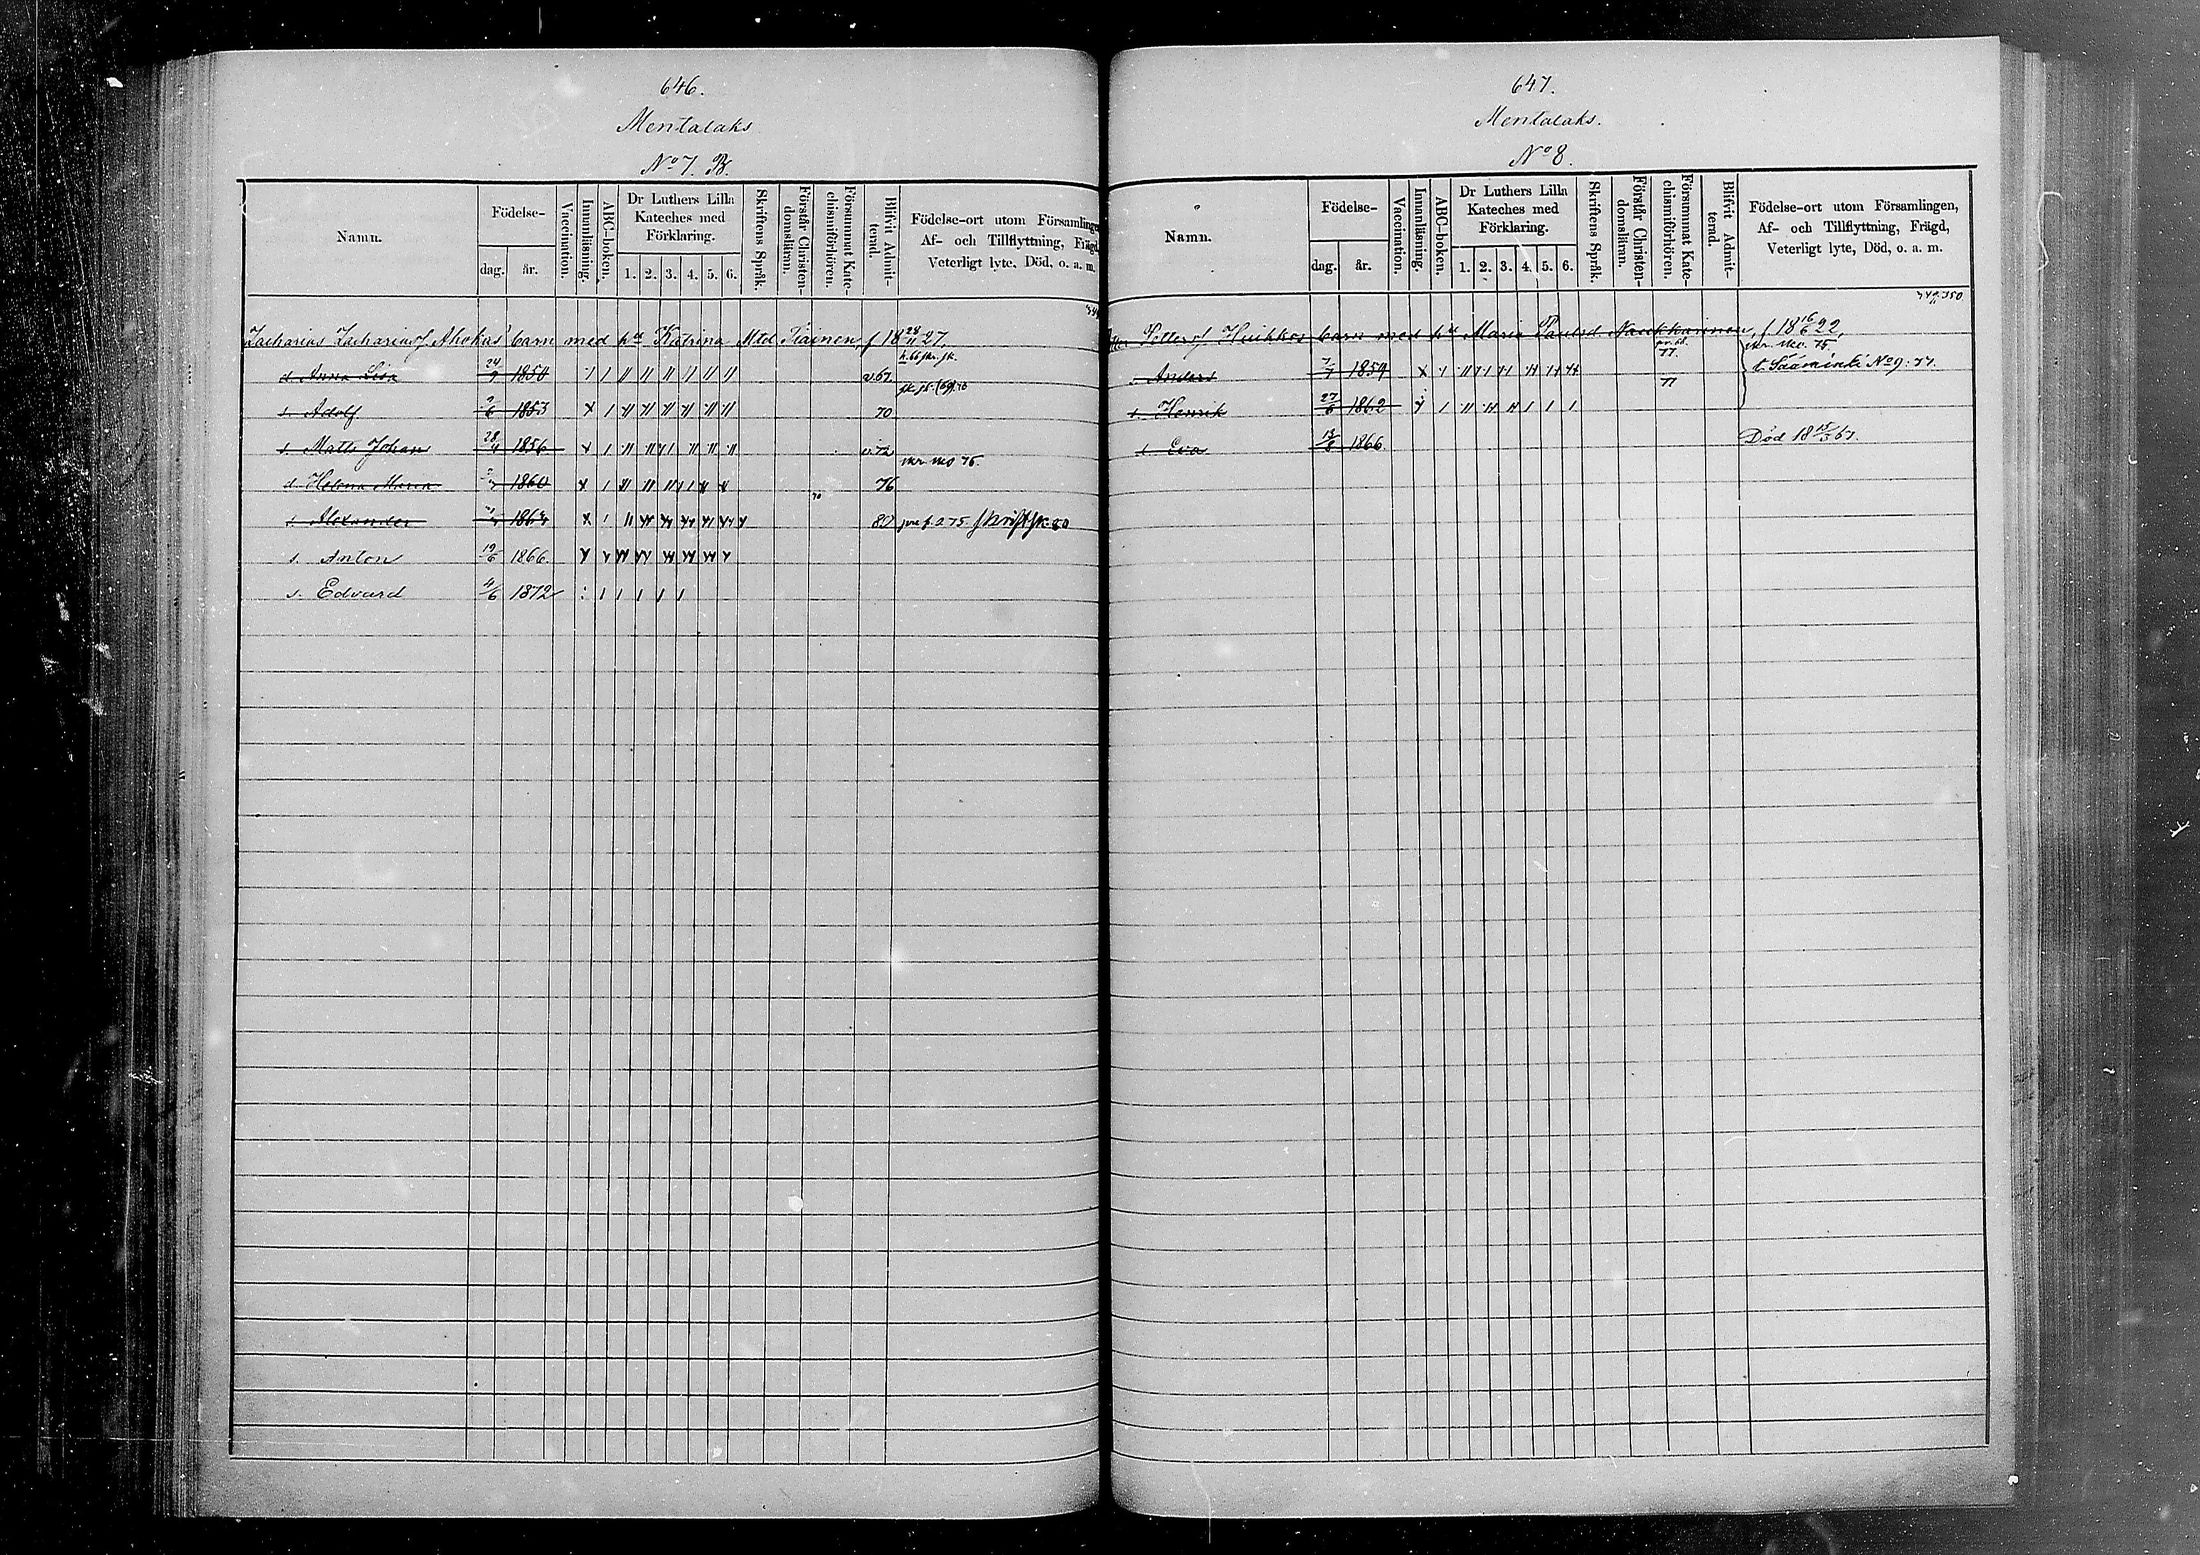 646.
Mentalaks
No 7. B.
Namn.
Födelse-
dag.
år.
Vaccination.
Innanläsning.
ABC-boken.
Dr Luthers Lilla
Kateches med
Förklaring.
1. 2. 3. 4. 5. 6.
Skriftens Språk.
Förstår Christen-
domsläran.
Försummat Kate-
chismiförhören.
Blifvit Admit-
terad.
Födelse-ort utom Församlingen,
Af- och Tillflyttning, Frägd,
Veterligt lyte, Död, o. a. m.
Zacharias Zacharias f Ahokas' barn med hu Katrina Mtd Tiainen, f 18 28/11 27.
d. Anna Lisa 24/9 1850 v 67.
s. Adolf 1853 70
s. Matts Johan 28/4 1856 v. 72
mr. mo 75.
d. Helena Maria 1860 76
70
s. Alexander 1864 80
s. Anton 19/6 1866.
s. Edvard 4/6 1872
647.
Mentalaks.
No 8.
Namn.
Födelse-
dag.
år.
Vaccination.
Innanläsning.
ABC-boken.
Dr Luthers Lilla
Kateches med
Förklaring.
1. 2. 3. 4. 5. 6.
Skriftens Språk.
Förstår Christen-
domsläran.
Försummat Kate-
chismiförhören.
Blifvit Admit-
terad.
Födelse-ort utom Församlingen,
Af- och Tillflyttning, Frägd,
Veterligt lyte, Död, o. a. m.
Petter f. Heikkos barn med hu Maria Paulsd Naukkarinen, f 18 16/6 22,
77. mr. mo. 75.
Anders 7/7 1859 t. Sääminki No 9: 77.
77
s. Henrik 27/6 1862
s. Eva 13/8 1866 Död 18 15/3 67.